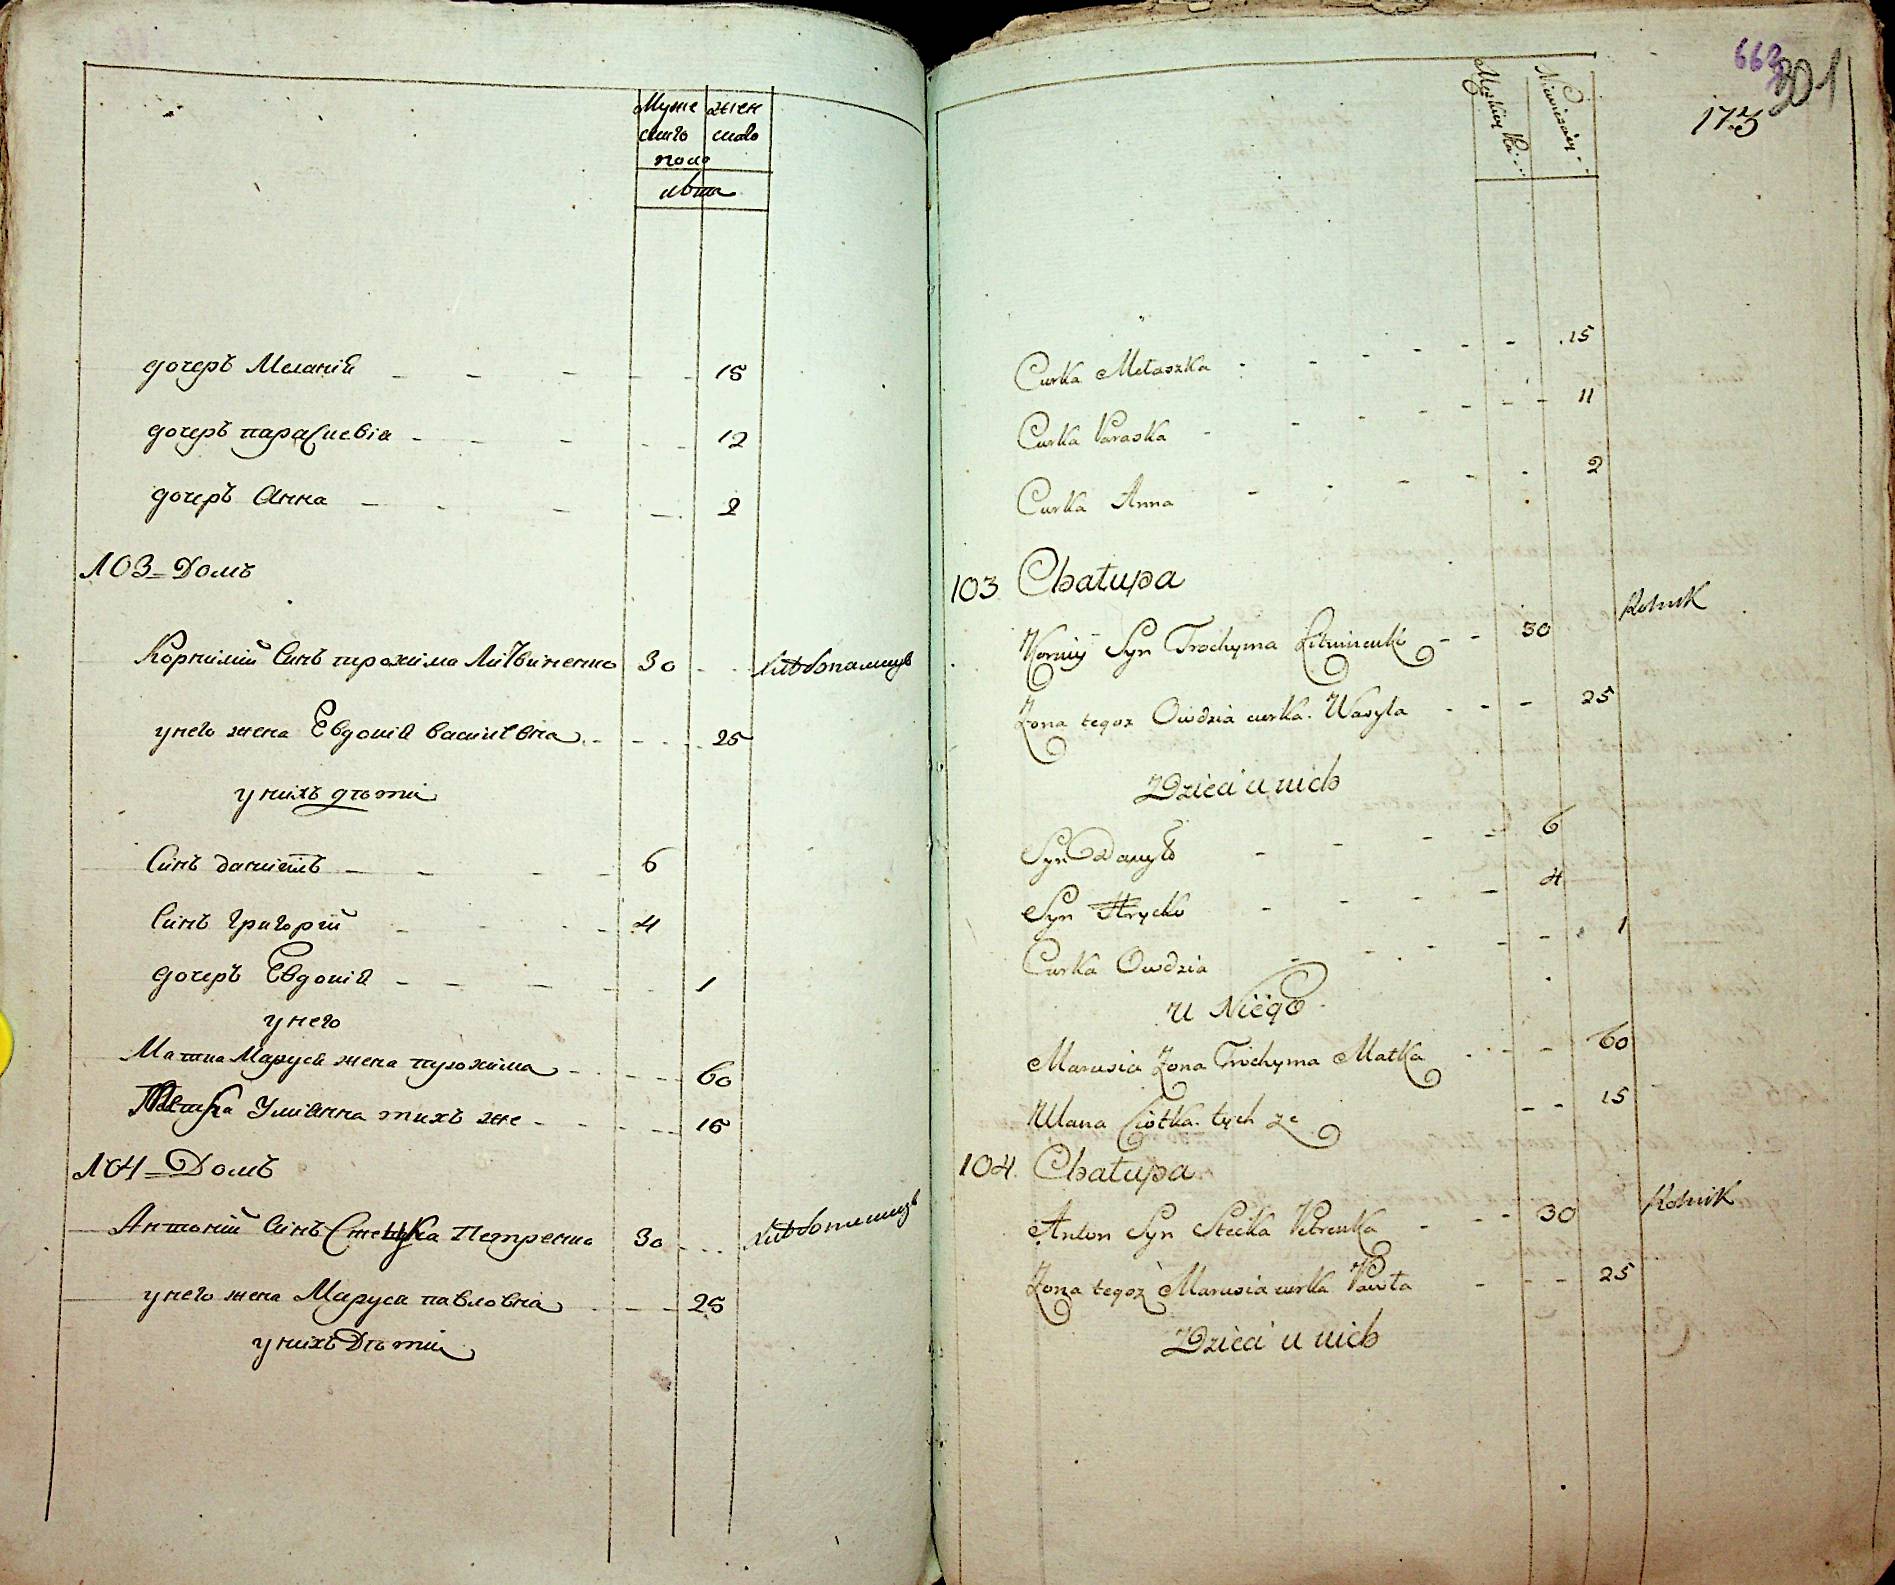 Муже жен
скаго скаго
полу
лѣта
дочеръ Меланія 15
дочеръ параскевія 12
дочеръ Анна 2
103 Домъ
Корнилий Синъ трохима Литвиненко 30 хлѣбопашецъ
унего жена Евдокія василевна 25
унихъ дѣти
Синъ даниилъ 6
Синъ Григорій 4
дочеръ Евдокія 1
унего
Матка Маруся жена трохима 60
Улиянна тихъ же 15
104 Домъ
Антоній Синъ Стецка Петренко 30 хлѣбопашецъ
унего жена Маруся павловна 25
унихъ Дѣти
662
301
173
Męzkiey Niewiesciey
Curka Mełaszka 15
Curka Paraska 11
Curka Anna 2
103 Chałupa
Korniy Syn Trochyma Litwinenko 30 Rolnik
Zona tegoz Owdzia curka Wasyla 25
Dzieci u nich
Syn Danyło 6
Syn Hrycko 4
Curka Owdzia 1
u Niego
Marusia Zona Trochyma Matka 60
Ulana Ciotka tych ze 15
104 Chałupa
Anton Syn Stecka Petrenka 30 Rolnik
Zona tegoz Marusia curka Pawła 25
Dzieci u nich